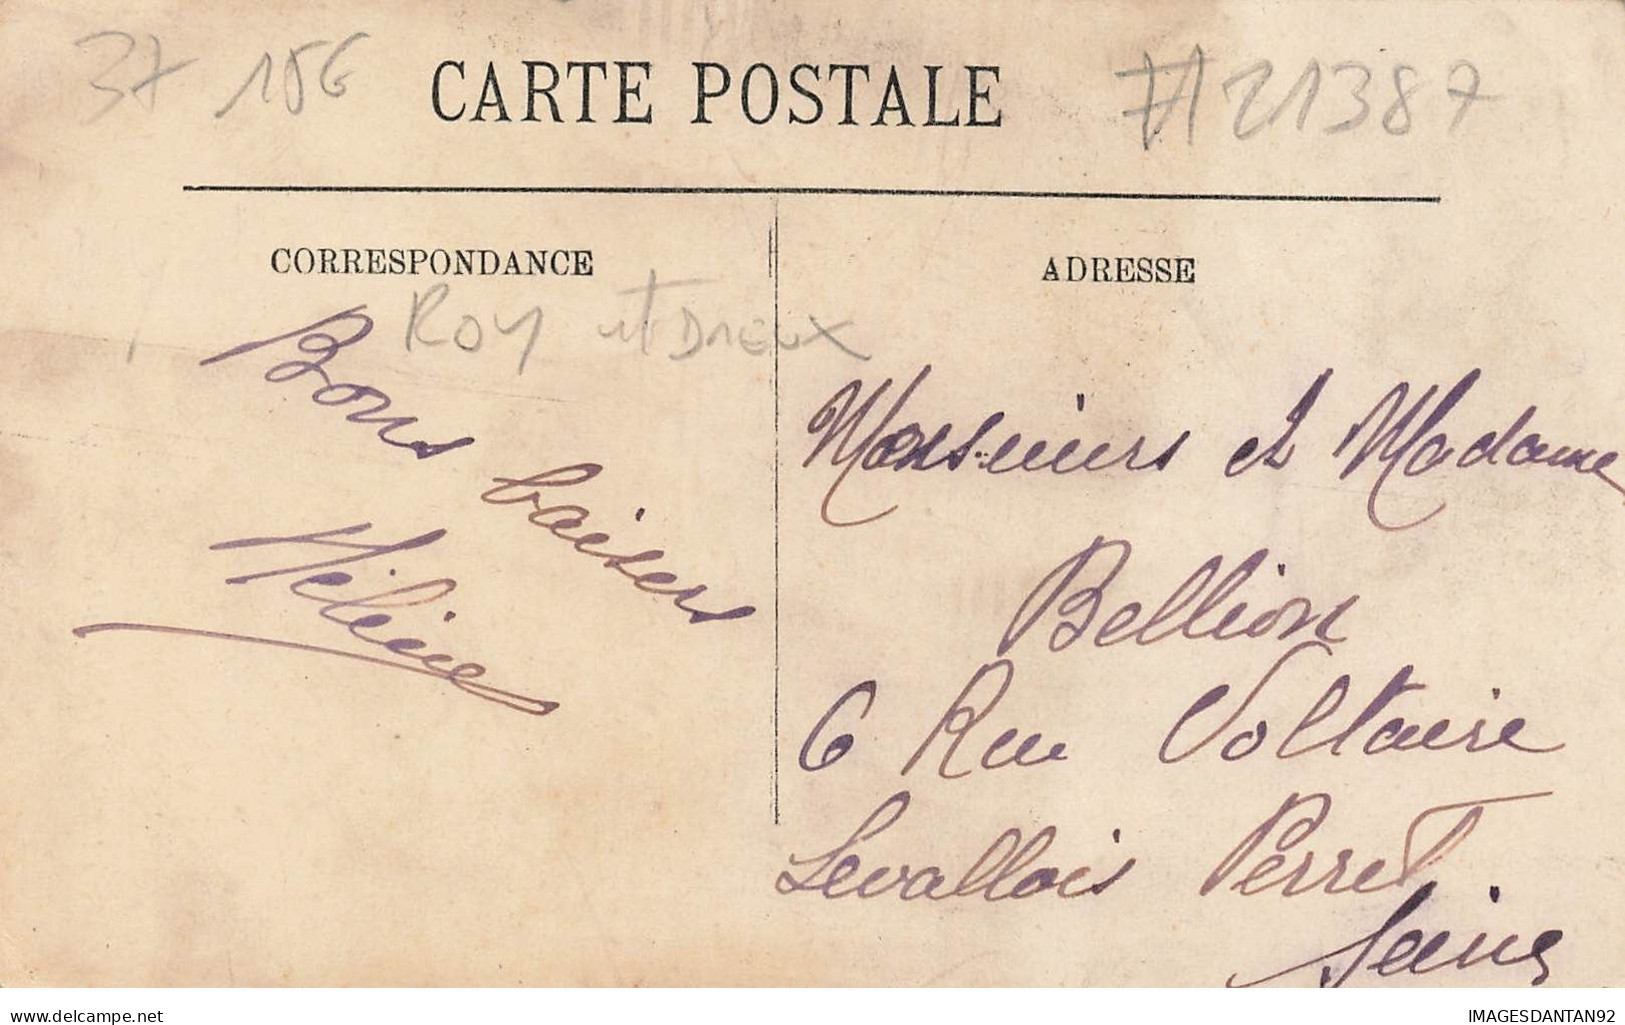 37 15€
CARTE POSTALE
#121387
CORRESPONDANCE
ADRESSE
Bons baisers
Hélène
Monsieurs et Madame
Bellion
6 Rue Voltaire
Levallois Perret
Seine
www.delcampe.net
IMAGESDANTAN92